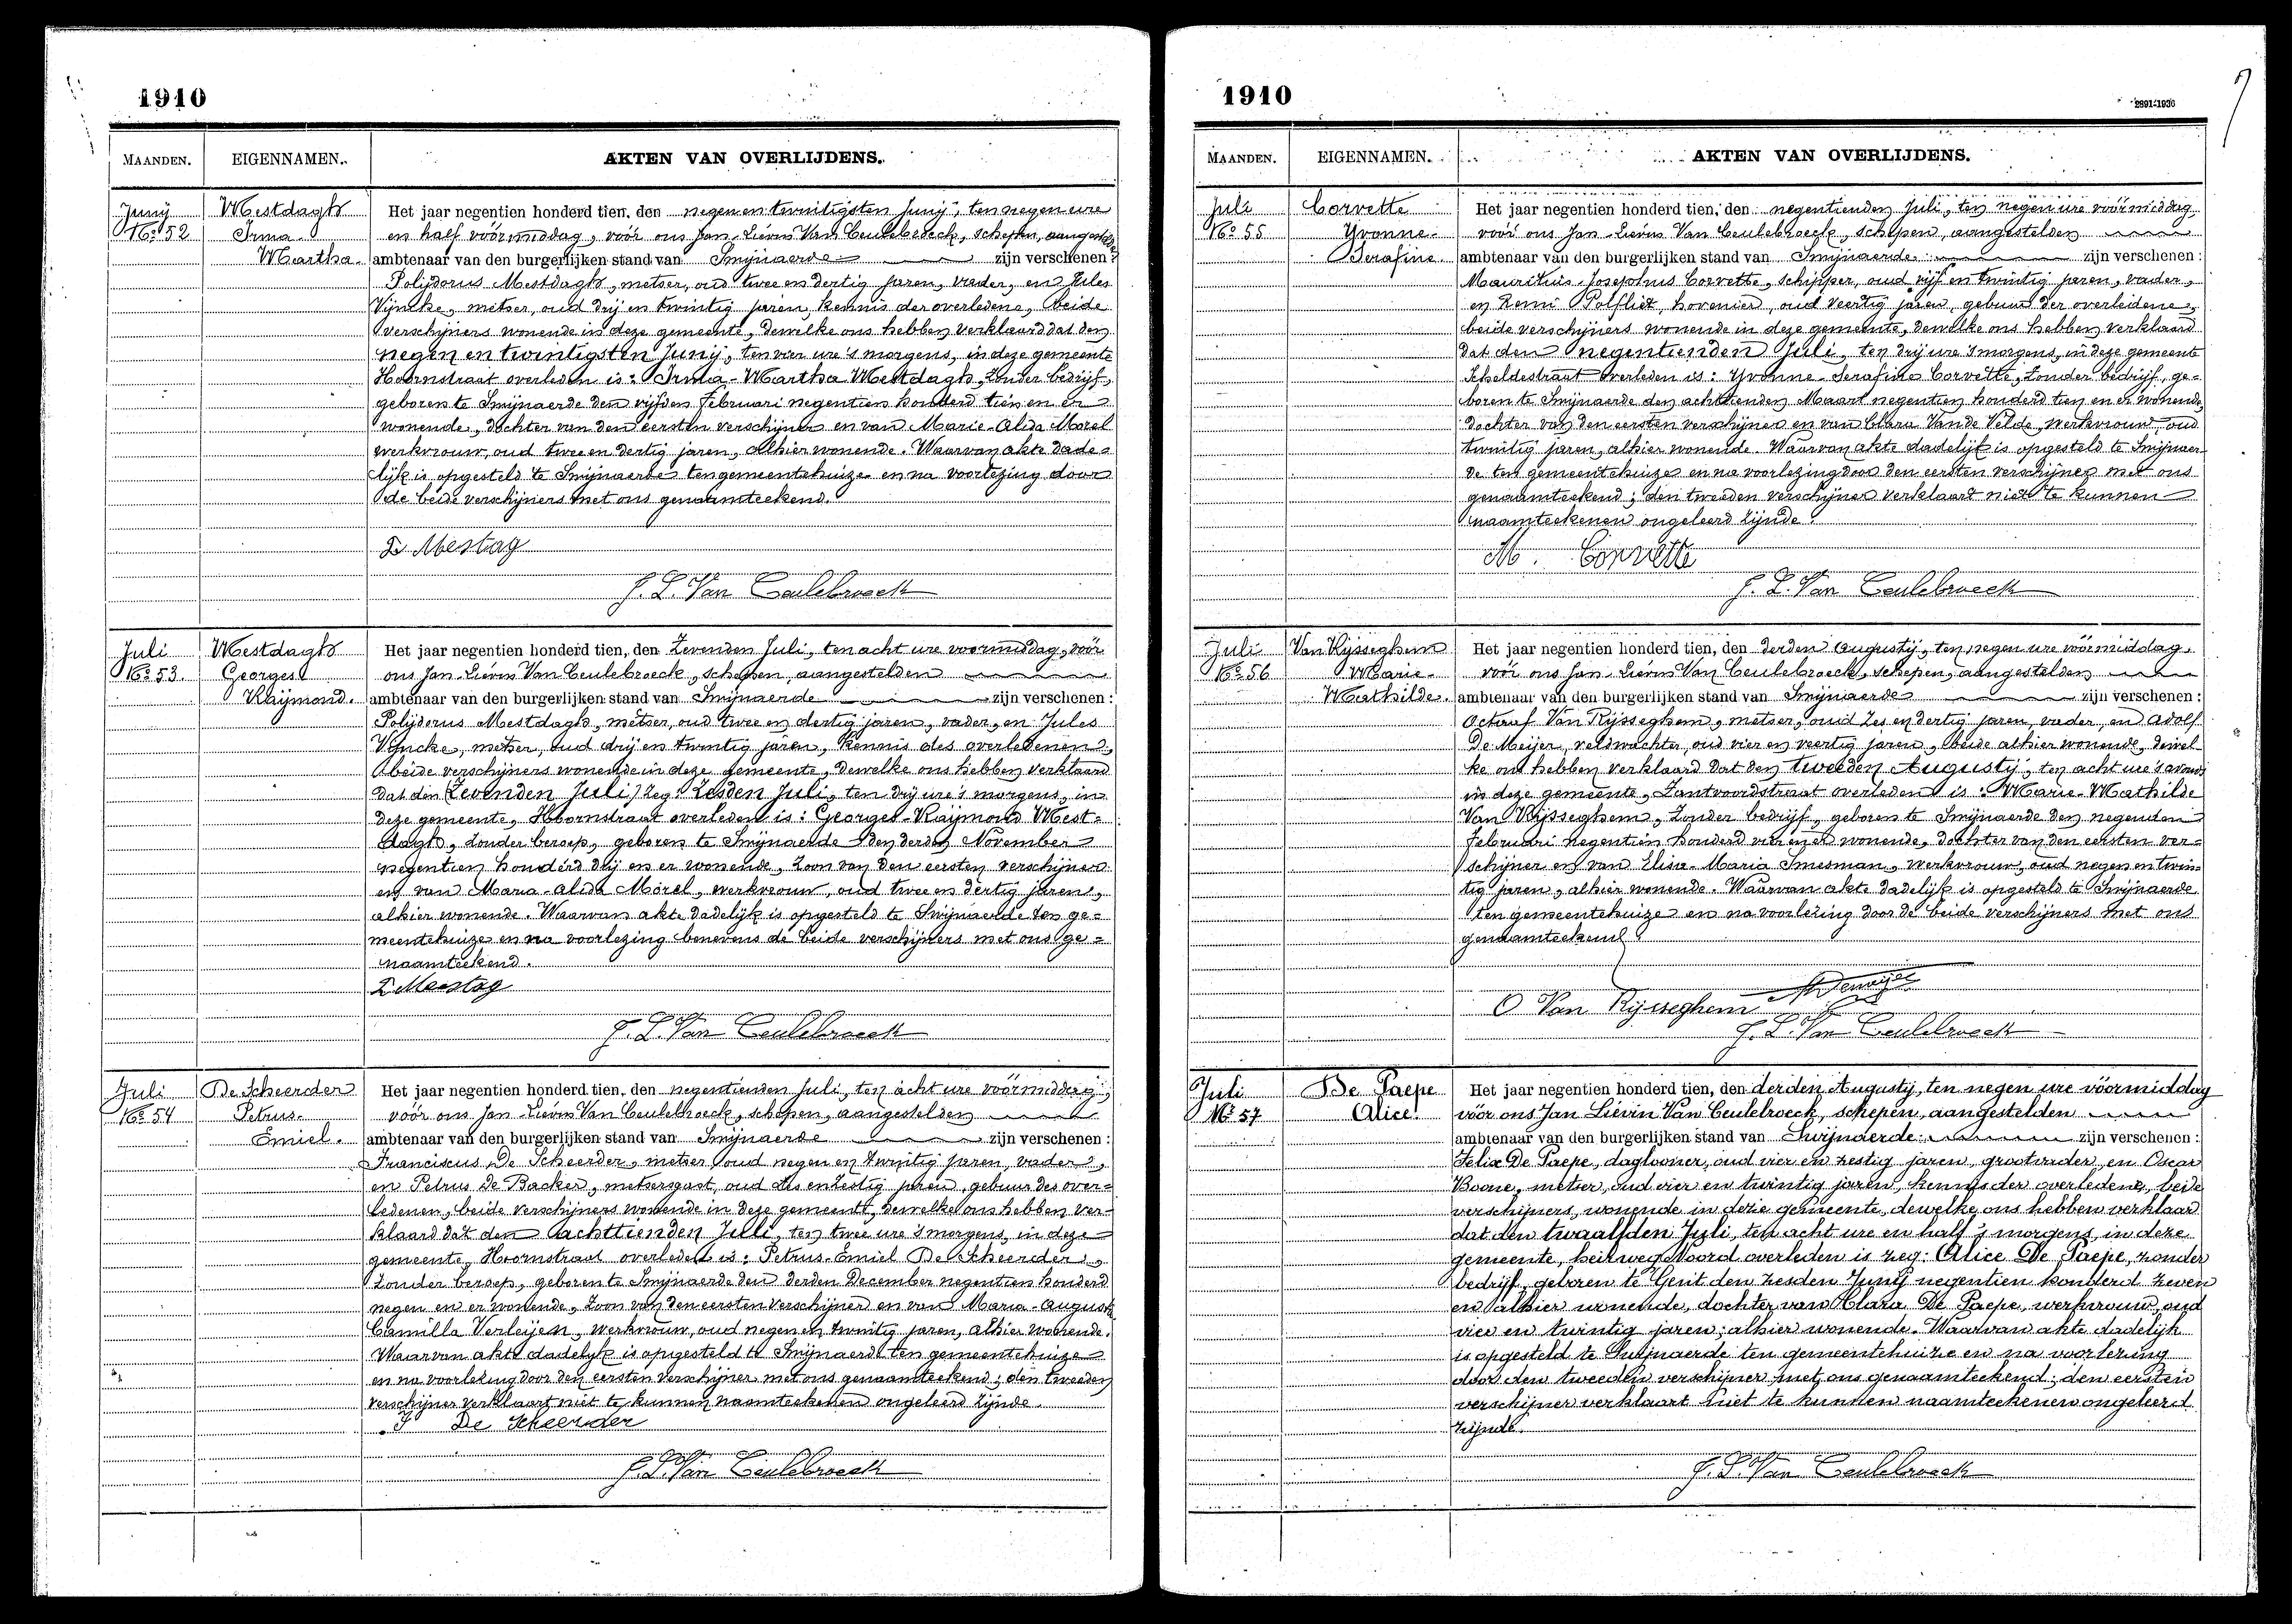 1910
MAANDEN.
EIGENNAMEN.
AKTEN VAN OVERLIJDENS.
Junij
No 52
Mestdagh
Irma
Martha.
Het jaar negentien honderd tien, den negen en twintigsten Junij, ten negen ure
en half vóórmiddag, vóór ons Jan-Lievin Van Ceulebroeck, schepen, aangestelden
ambtenaar van den burgerlijken stand van Swijnaerde zijn verschenen:
Polijdorus Mestdagh, metser, oud twee en dertig jaren, vader, en Jules
Vijncke, metser, oud drij en twintig jaren, kennis der overledene, beide
verschijners wonende in deze gemeente, dewelke ons hebben verklaard dat den
negen en twintigsten Junij, ten vier ure 's morgens, in deze gemeente
Hoornstraat overleden is: Irma-Martha Mestdagh, zonder bedrijf,
geboren te Swijnaerde den vijfden Februari negentien honderd tien en er
wonende, dochter van den eersten verschijner en van Marie-Alida Morel
werkvrouw, oud twee en dertig jaren, alhier wonende. Waarvan akte dade-
lijk is opgesteld te Swijnaerde ten gemeentehuize en na voorlezing door
de beide verschijners met ons genaamteekend.
P. Mestag
J. L. Van Ceulebroeck
Juli
No 53.
Mestdagh
Georges
Raijmond.
Het jaar negentien honderd tien, den zevenden Juli, ten acht ure voormiddag, vóór
ons Jan-Lievin Van Ceulebroeck, schepen, aangestelden
ambtenaar van den burgerlijken stand van Swijnaerde zijn verschenen:
Polijdorus Mestdagh, metser, oud twee en dertig jaren, vader, en Jules
Vijncke, metser, oud drij en twintig jaren, kennis des overledenen,
beide verschijners wonende in deze gemeente, dewelke ons hebben verklaard
dat den (zevenden Juli) zeg: zesden Juli, ten drij ure 's morgens, in
deze gemeente, Hoornstraat overleden is: Georges-Raijmond Mest-
dagh, zonder beroep, geboren te Swijnaerde den derden November
negentien honderd drij en er wonende, zoon van den eersten verschijner
en van Maria-Alida Morel, werkvrouw, oud twee en dertig jaren,
alhier wonende. Waarvan akte dadelijk is opgesteld te Swijnaerde ten ge-
meentehuize en na voorlezing benevens de beide verschijners met ons ge-
naamteekend.
P. Mestag
J. L. Van Ceulebroeck
Juli
No 54
De Scheerder
Petrus
Emiel.
Het jaar negentien honderd tien, den negentienden Juli, ten acht ure vóórmiddag,
vóór ons Jan-Lievin Van Ceulebroeck, schepen, aangestelden
ambtenaar van den burgerlijken stand van Swijnaerde zijn verschenen:
Franciscus De Scheerder, metser oud negen en twintig jaren, vader,
en Petrus De Backer, metsersgast, oud zestig jaren, gebuur des over-
ledenen, beide verschijners wonende in deze gemeente, dewelke ons hebben ver-
klaard dat den achttienden Juli, ten twee ure 's morgens, in deze
gemeente, Hoornstraat overleden is: Petrus-Emiel De Scheerder,
zonder beroep, geboren te Swijnaerde den derden December negentien honderd
negen en er wonende, zoon van den eersten verschijner en van Maria-Augusta
Camilla Verleijen, werkvrouw, oud negen en twintig jaren, alhier wonende.
Waarvan akte dadelijk is opgesteld te Swijnaerde ten gemeentehuize
en na voorlezing door den eersten verschijner met ons genaamteekend; den tweeden
verschijner verklaart niet te kunnen naamteekenen ongeleerd zijnde.
De Scheerder
J. L. Van Ceulebroeck
1910
2891-1930
7
MAANDEN.
EIGENNAMEN.
AKTEN VAN OVERLIJDENS.
Juli
No 55
Corvette
Yvonne
Serafine.
Het jaar negentien honderd tien, den negentienden Juli, ten negen ure vóórmiddag
vóór ons Jan-Lievin Van Ceulebroeck, schepen, aangestelden
ambtenaar van den burgerlijken stand van Swijnaerde zijn verschenen:
Mauritius-Josephus Corvette, schipper, oud vijf en twintig jaren, vader,
en Remi Polfliet, hovenier, oud veertig jaren, gebuur der overledene,
beide verschijners wonende in deze gemeente, dewelke ons hebben verklaard
dat den negentienden Juli, ten drij ure 's morgens, in deze gemeente
Scheldestraat overleden is: Yvonne-Serafine Corvette, zonder bedrijf, ge-
boren te Swijnaerde den achttienden Maart negentien honderd tien en er wonende,
dochter van den eersten verschijner en van Clara Van de Velde, werkvrouw, oud
twintig jaren, alhier wonende. Waarvan akte dadelijk is opgesteld te Swijnaer-
de ten gemeentehuize en na voorlezing door den eersten verschijner met ons
genaamteekend; den tweeden verschijner verklaart niet te kunnen
naamteekenen ongeleerd zijnde.
M. Corvette
J. L. Van Ceulebroeck
Juli
No 56
Van Rijsseghem
Marie
Mathilde.
Het jaar negentien honderd tien, den derden Augustij, ten negen ure vóórmiddag
vóór ons Jan-Lievin Van Ceulebroeck, schepen, aangestelden
ambtenaar van den burgerlijken stand van Swijnaerde zijn verschenen:
Octaaf Van Rijsseghem, metser, oud zes en dertig jaren, vader, en Adolf
De Meijer, veldwachter, oud vier en veertig jaren, beide alhier wonende, dewel-
ke ons hebben verklaard dat den tweeden Augustij, ten acht ure 's avonds
in deze gemeente, Zantvoordstraat overleden is: Marie-Mathilde
Van Rijsseghem, zonder bedrijf, geboren te Swijnaerde den negenden
Februari negentien honderd vier en er wonende, dochter van den eersten ver-
schijner en van Elisa-Maria Smesman, werkvrouw, oud negen en twin-
tig jaren, alhier wonende. Waarvan akte dadelijk is opgesteld te Swijnaerde
ten gemeentehuize en na voorlezing door de beide verschijners met ons
genaamteekend
O Van Rijsseghem
J. L. Van Ceulebroeck
Juli
No 57
De Paepe
Alice.
Het jaar negentien honderd tien, den derden Augustij, ten negen ure vóórmiddag
vóór ons Jan Lievin Van Ceulebroeck, schepen, aangestelden
ambtenaar van den burgerlijken stand van Swijnaerde zijn verschenen:
Felix De Paepe, dagloner, oud vier en zestig jaren, grootvader, en Oscar
Boone, metser, oud vier en twintig jaren, kennis der overledene, beide
verschijners, wonende in deze gemeente, dewelke ons hebben verklaard
dat den twaalfden Juli, ten acht ure en half 's morgens, in deze
gemeente, heirweg Noord overleden is zeg: Alice De Paepe, zonder
bedrijf, geboren te Gent den zesden Junij negentien honderd zeven
en alhier wonende, dochter van Clara De Paepe, werkvrouw, oud
vier en twintig jaren, alhier wonende. Waarvan akte dadelijk
is opgesteld te Swijnaerde ten gemeentehuize en na voorlezing
door den tweeden verschijner met ons genaamteekend; den eersten
verschijner verklaart niet te kunnen naamteekenen ongeleerd
zijnde.
J. L. Van Ceulebroeck